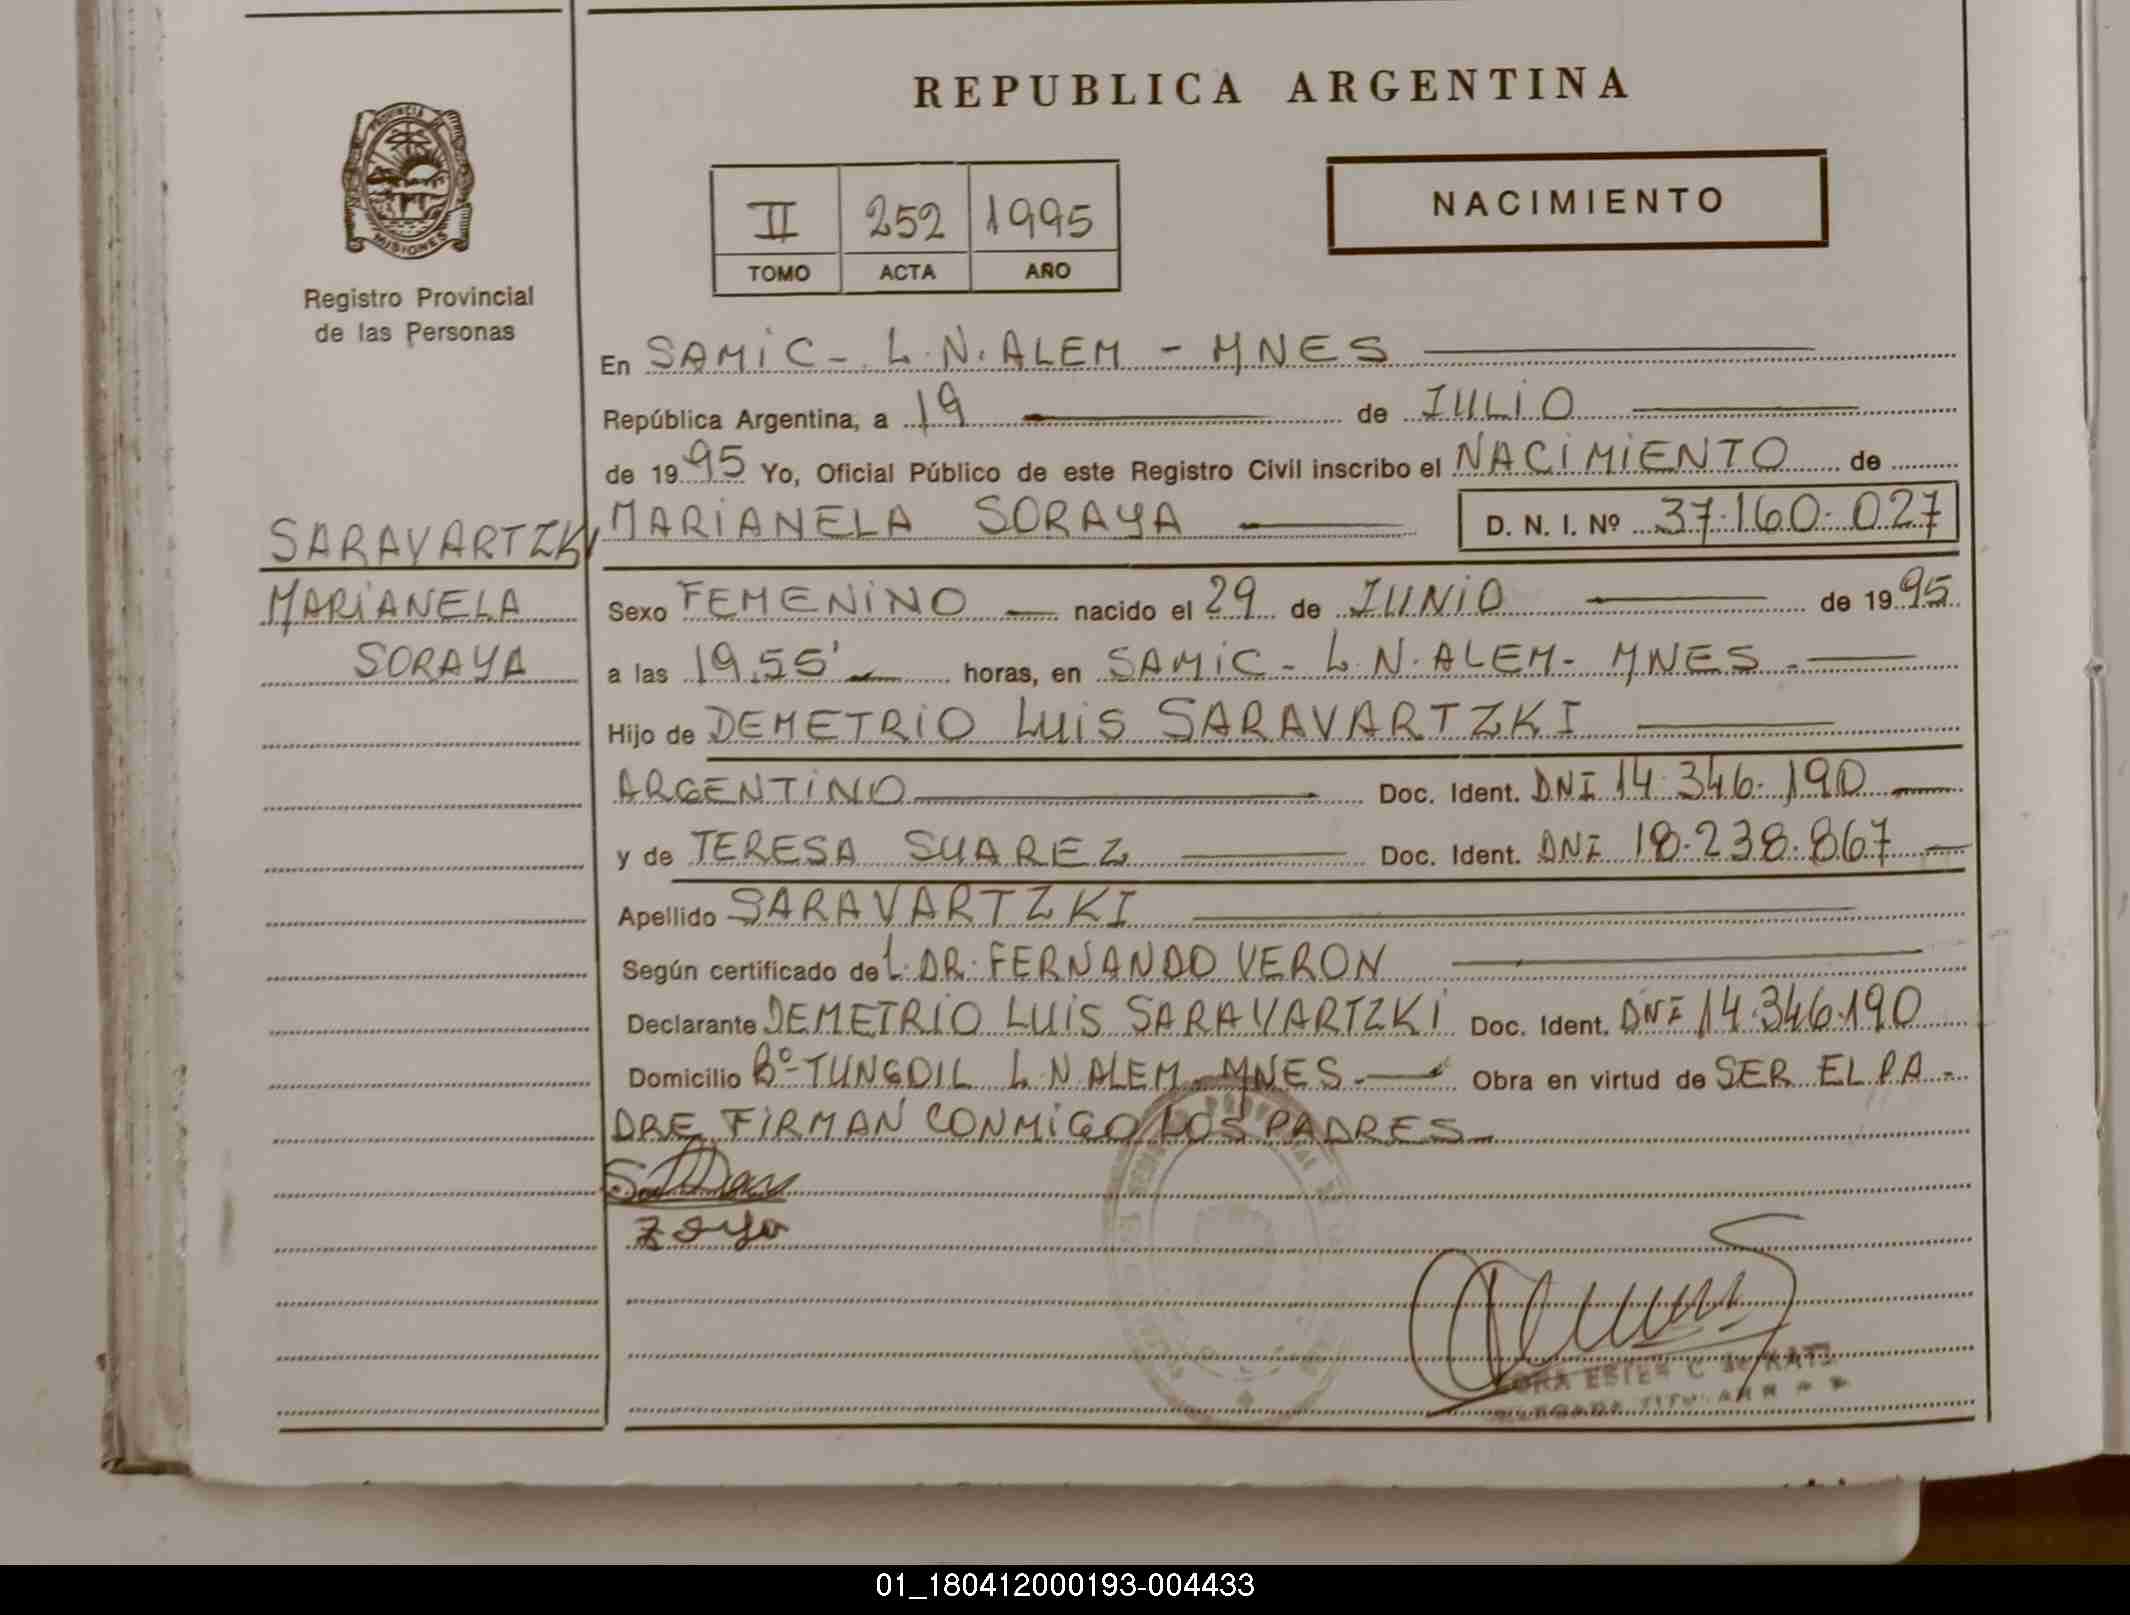 REPUBLICA ARGENTINA
PROVINCIA DE
MISIONES
Registro Provincial
de las Personas
II 252 1995
TOMO ACTA AÑO
NACIMIENTO
En SAMIC - L.N. ALEM - MNES
República Argentina, a 19 de JULIO
de 1995 Yo, Oficial Público de este Registro Civil inscribo el NACIMIENTO de
MARIANELA SORAYA D. N. I. Nº 37.160.027
SARAVARTZKI
MARIANELA
SORAYA
Sexo FEMENINO nacido el 29 de JUNIO de 1995
a las 19.55' horas, en SAMIC - L.N. ALEM - MNES -
Hijo de DEMETRIO LUIS SARAVARTZKI
ARGENTINO Doc. Ident. DNI 14.346.190
y de TERESA SUAREZ Doc. Ident. DNI 18.238.867
Apellido SARAVARTZKI
Según certificado del. DR. FERNANDO VERON
Declarante DEMETRIO LUIS SARAVARTZKI Doc. Ident. DNI 14.346.190
Domicilio Bº TUNGOIL L N ALEM - MNES - Obra en virtud de SER EL PA-
DRE FIRMAN CONMIGO LOS PADRES
01_180412000193-004433